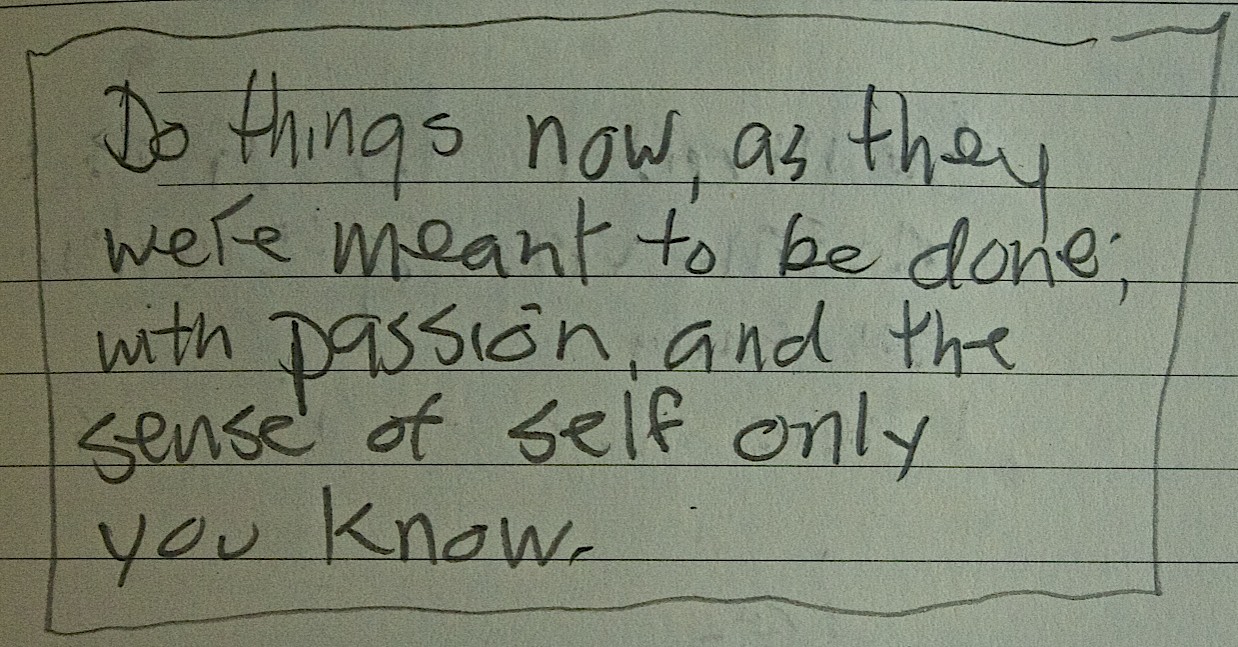 Do things now, as they
were meant to be done;
with passion, and the
sense of self only
you know.